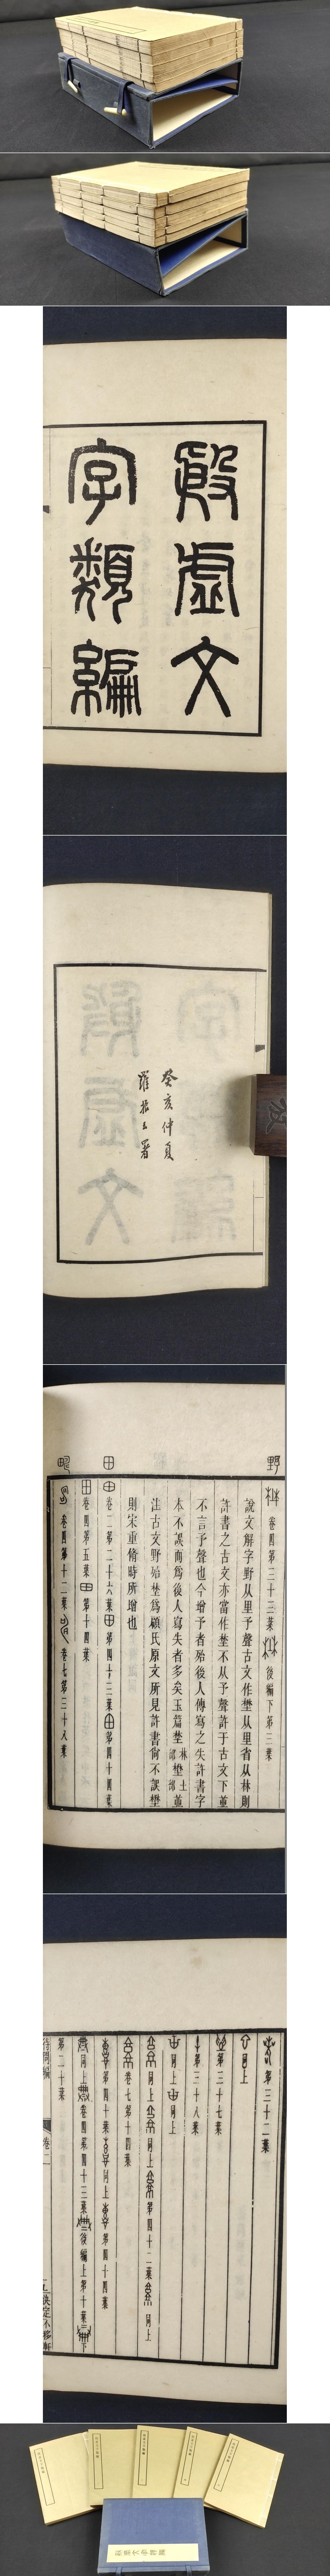 殷虛文
字類編
癸亥仲夏
羅振玉署
野
卷四第三十三葉
後編下第三葉
說文解字野从里予聲古文作埜从里省从林則
許書之古文亦當作埜不从予聲許于古文下並
不言予聲也今增予者殆後人傳寫之失許書字
本不誤而爲後人寫失者多矣玉篇埜林部埜土部並
注古文野殆埜爲顧氏原文所見許書尚不誤壄
則宋重脩時所增也
田
卷二第二十六葉
第四十三葉
第四十四葉
卷四第五葉
第十四葉
卷四第十二葉
卷七第三十八葉
第三十二葉
同上
第三十七葉
第三十八葉
同上
同上
同上
同上
第四十二葉
同上
卷七第十四葉
第四十葉
同上
第四十四葉
同上
卷四第四十三葉
後編上第十葉
下
第二十葉
待問編
卷二
五
決定不移軒
殷虛文字類編